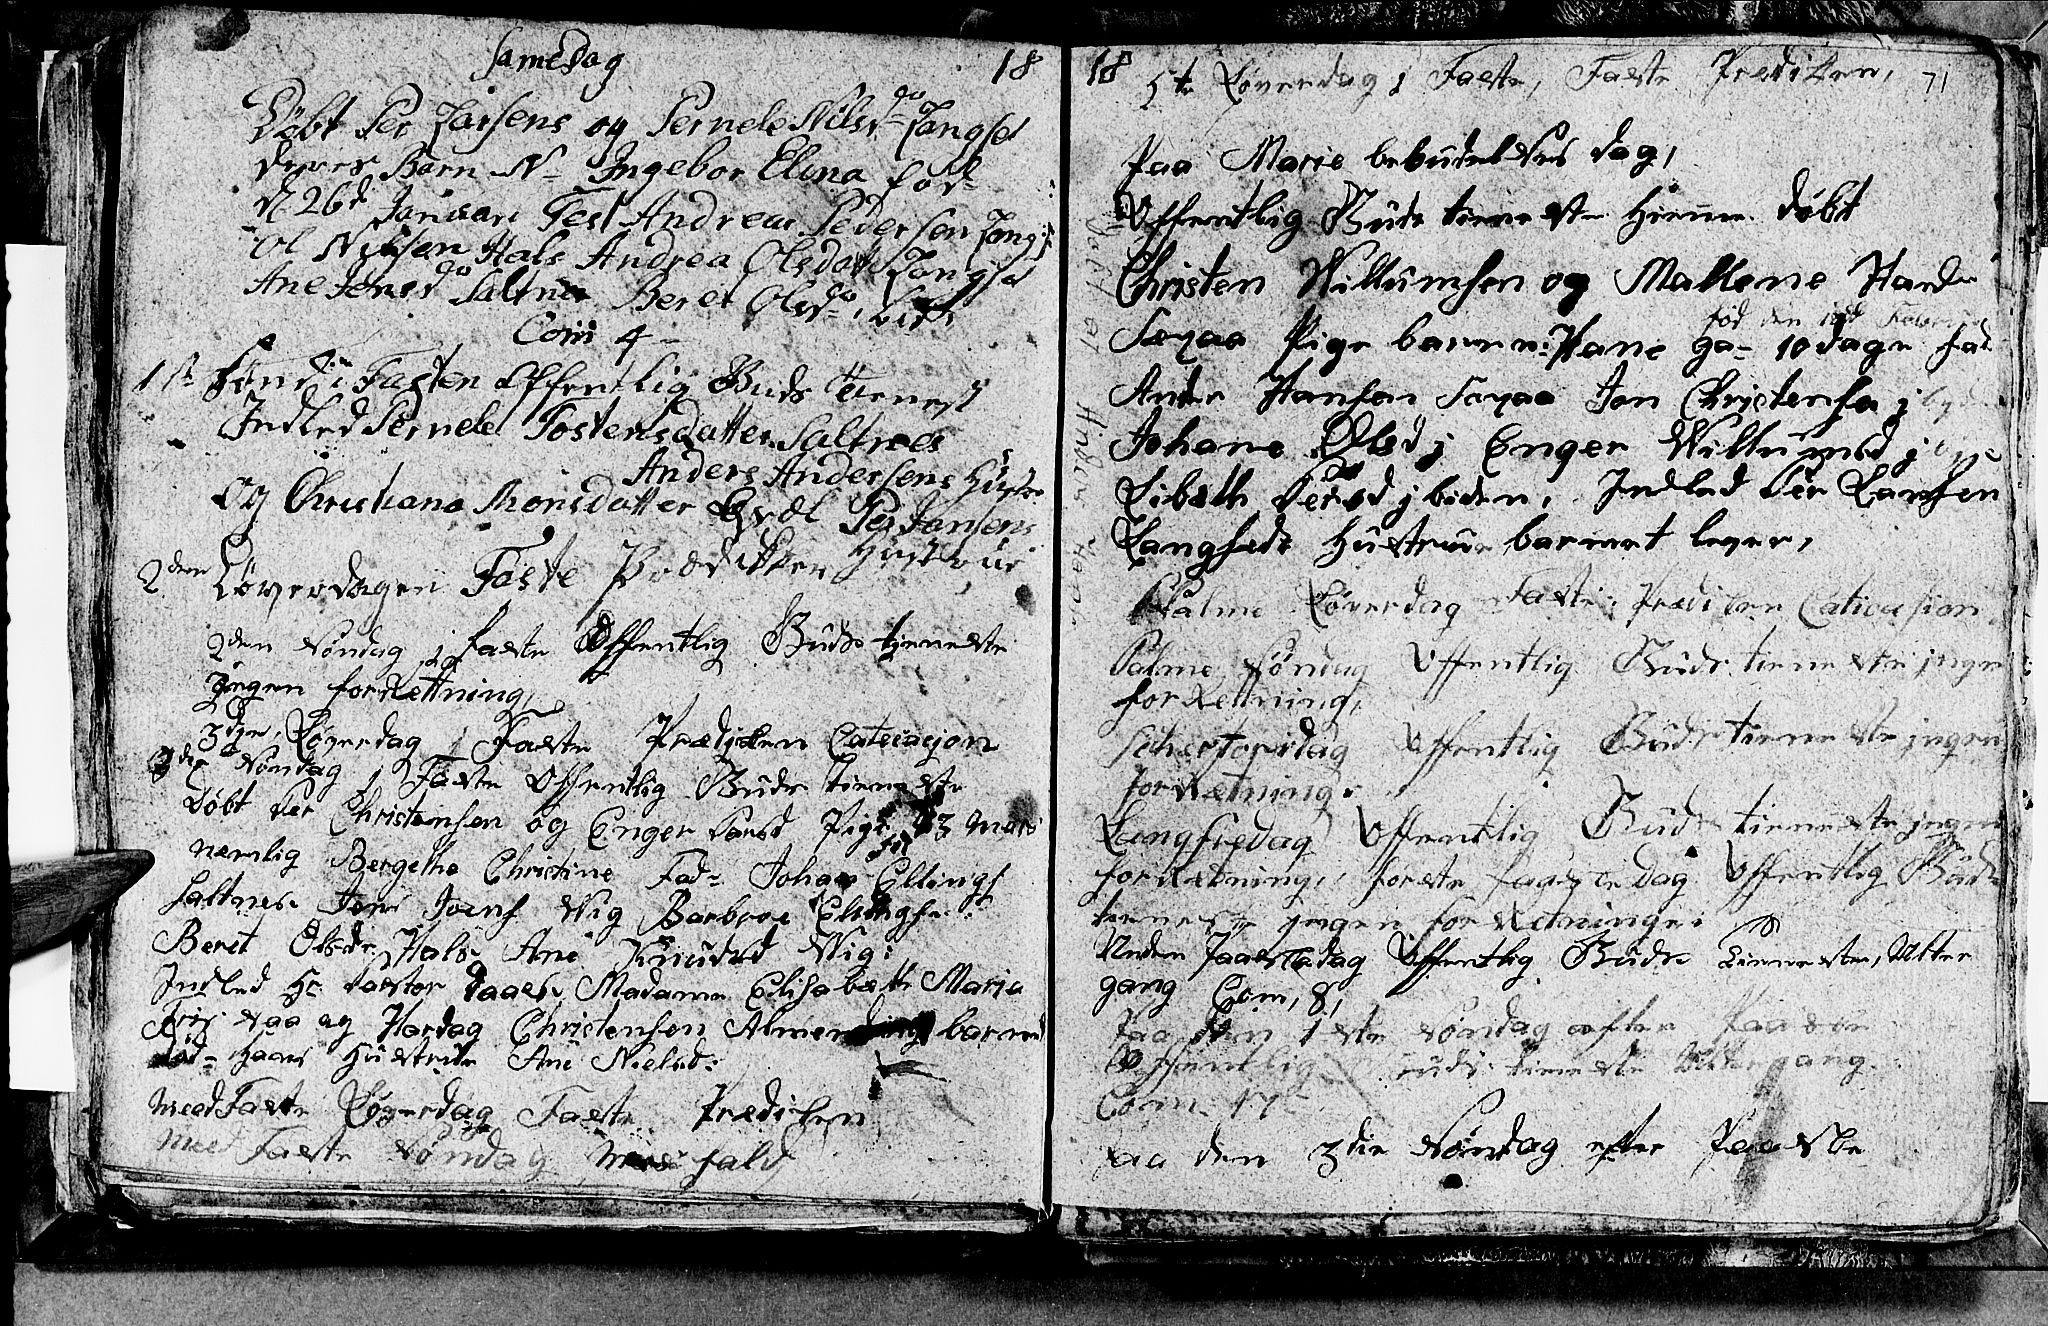 Samedag 18
Døbt Per Larsens og Pernele Nilsdo Langset
Deres Barn N- Ingebor Elena fød
d 26d Januari Test Andreas Pedersen Langs
Ol Nilsen Hals Andrea Olsdatt Langset
Ane Jensdo Saltnes Beret Olsdo
Com 4-
1st Sønd: i Fasten Offentlig Guds tienest
Indled Pernele Tostensdatter Saltnes
Anders Andersens Hustr
Og Christiana Monsdatter Per Jansens
Hustrue
2den Løverdagen Faste Prædikken
2den Søndag j Faste Offentlig Guds tjeneste
jngen forRettning
3die Løverdag j Faste Prædiken Catecasjon
3die Søndag j Faste Offentlig Guds tieneste
Døbt Per Christensen og Enger Persd Pige fød 3 Mars
nemlig Bergethe Christine Fad- Johan Ellings
Saltnes Jon Joens Wig Barbroe Ellings
Beret Olsdr Hals Ane Knudsd Wig:
Indled Hr Pastor Daaes Madame Elisabeth Maria
Friis Naa og Hardag Christensen Almending barnet
død- Hans Hustrue Ane Nielsd:
med Faste Løverdag Faste Prædiken
med Faste Søndag Mesfald
18 5te Løverdag j Faste, Faste Prediken, 71
Paa Marie bebudelses dag,
Offentlig Guds tieneste Hieme døbt
Christen Willumsen og Mallene Hansd
fød den Februari
Soyaa Pige barn n: Hane ga- 10 dage fad
Ander Hansen Soyaa Jon Christensen j
Johane Olsd j Enger Willumsd j
Lisbeth Persd j biden, Indled Per Larsen
Langsets Hustrue barnet lever,
Palme Løverdag Faste Prædiken Caticasion
Palme Søndag Offentlig Guds tieneste jngen
forRetning,
Schertorsdag Offentlig Guds tieneste jngen
forRetning.
Langfredag Offentlig Guds tieneste jngen
forRetning, forste dag Offentlig Guds
tieneste jngen forRetninger
Anden Paaskedag Offentlig Guds tieneste, Alter
gang Com, 8,
Paa den 1ste Søndag after Paaske
Offentlig Guds tieneste Altergang
Com- 17
Paa den 3die Søndag efter Paaske